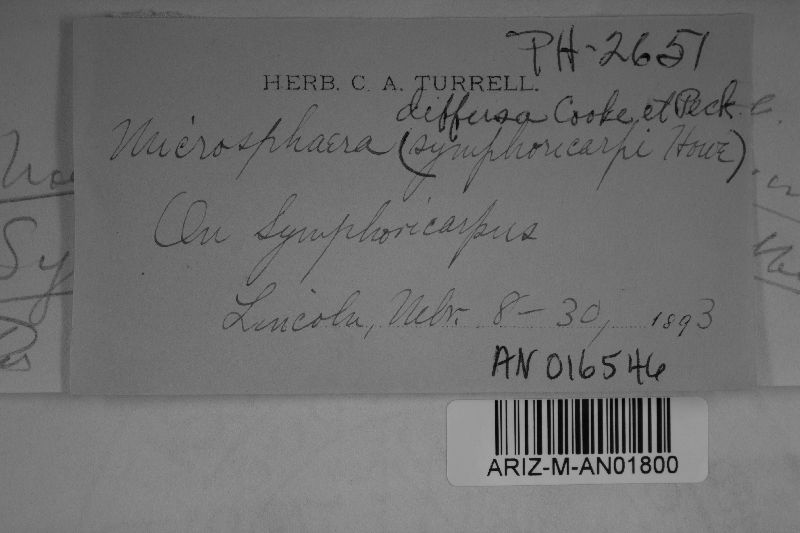 PH-2651
HERB. C. A. TURRELL.
diffusa Cooke et Peck
Microsphaera (symphoricarpi Howe)
On Symphoricarpus
Lincoln, Nebr. 8-30, 1893
AN 016546
ARIZ-M-AN01800